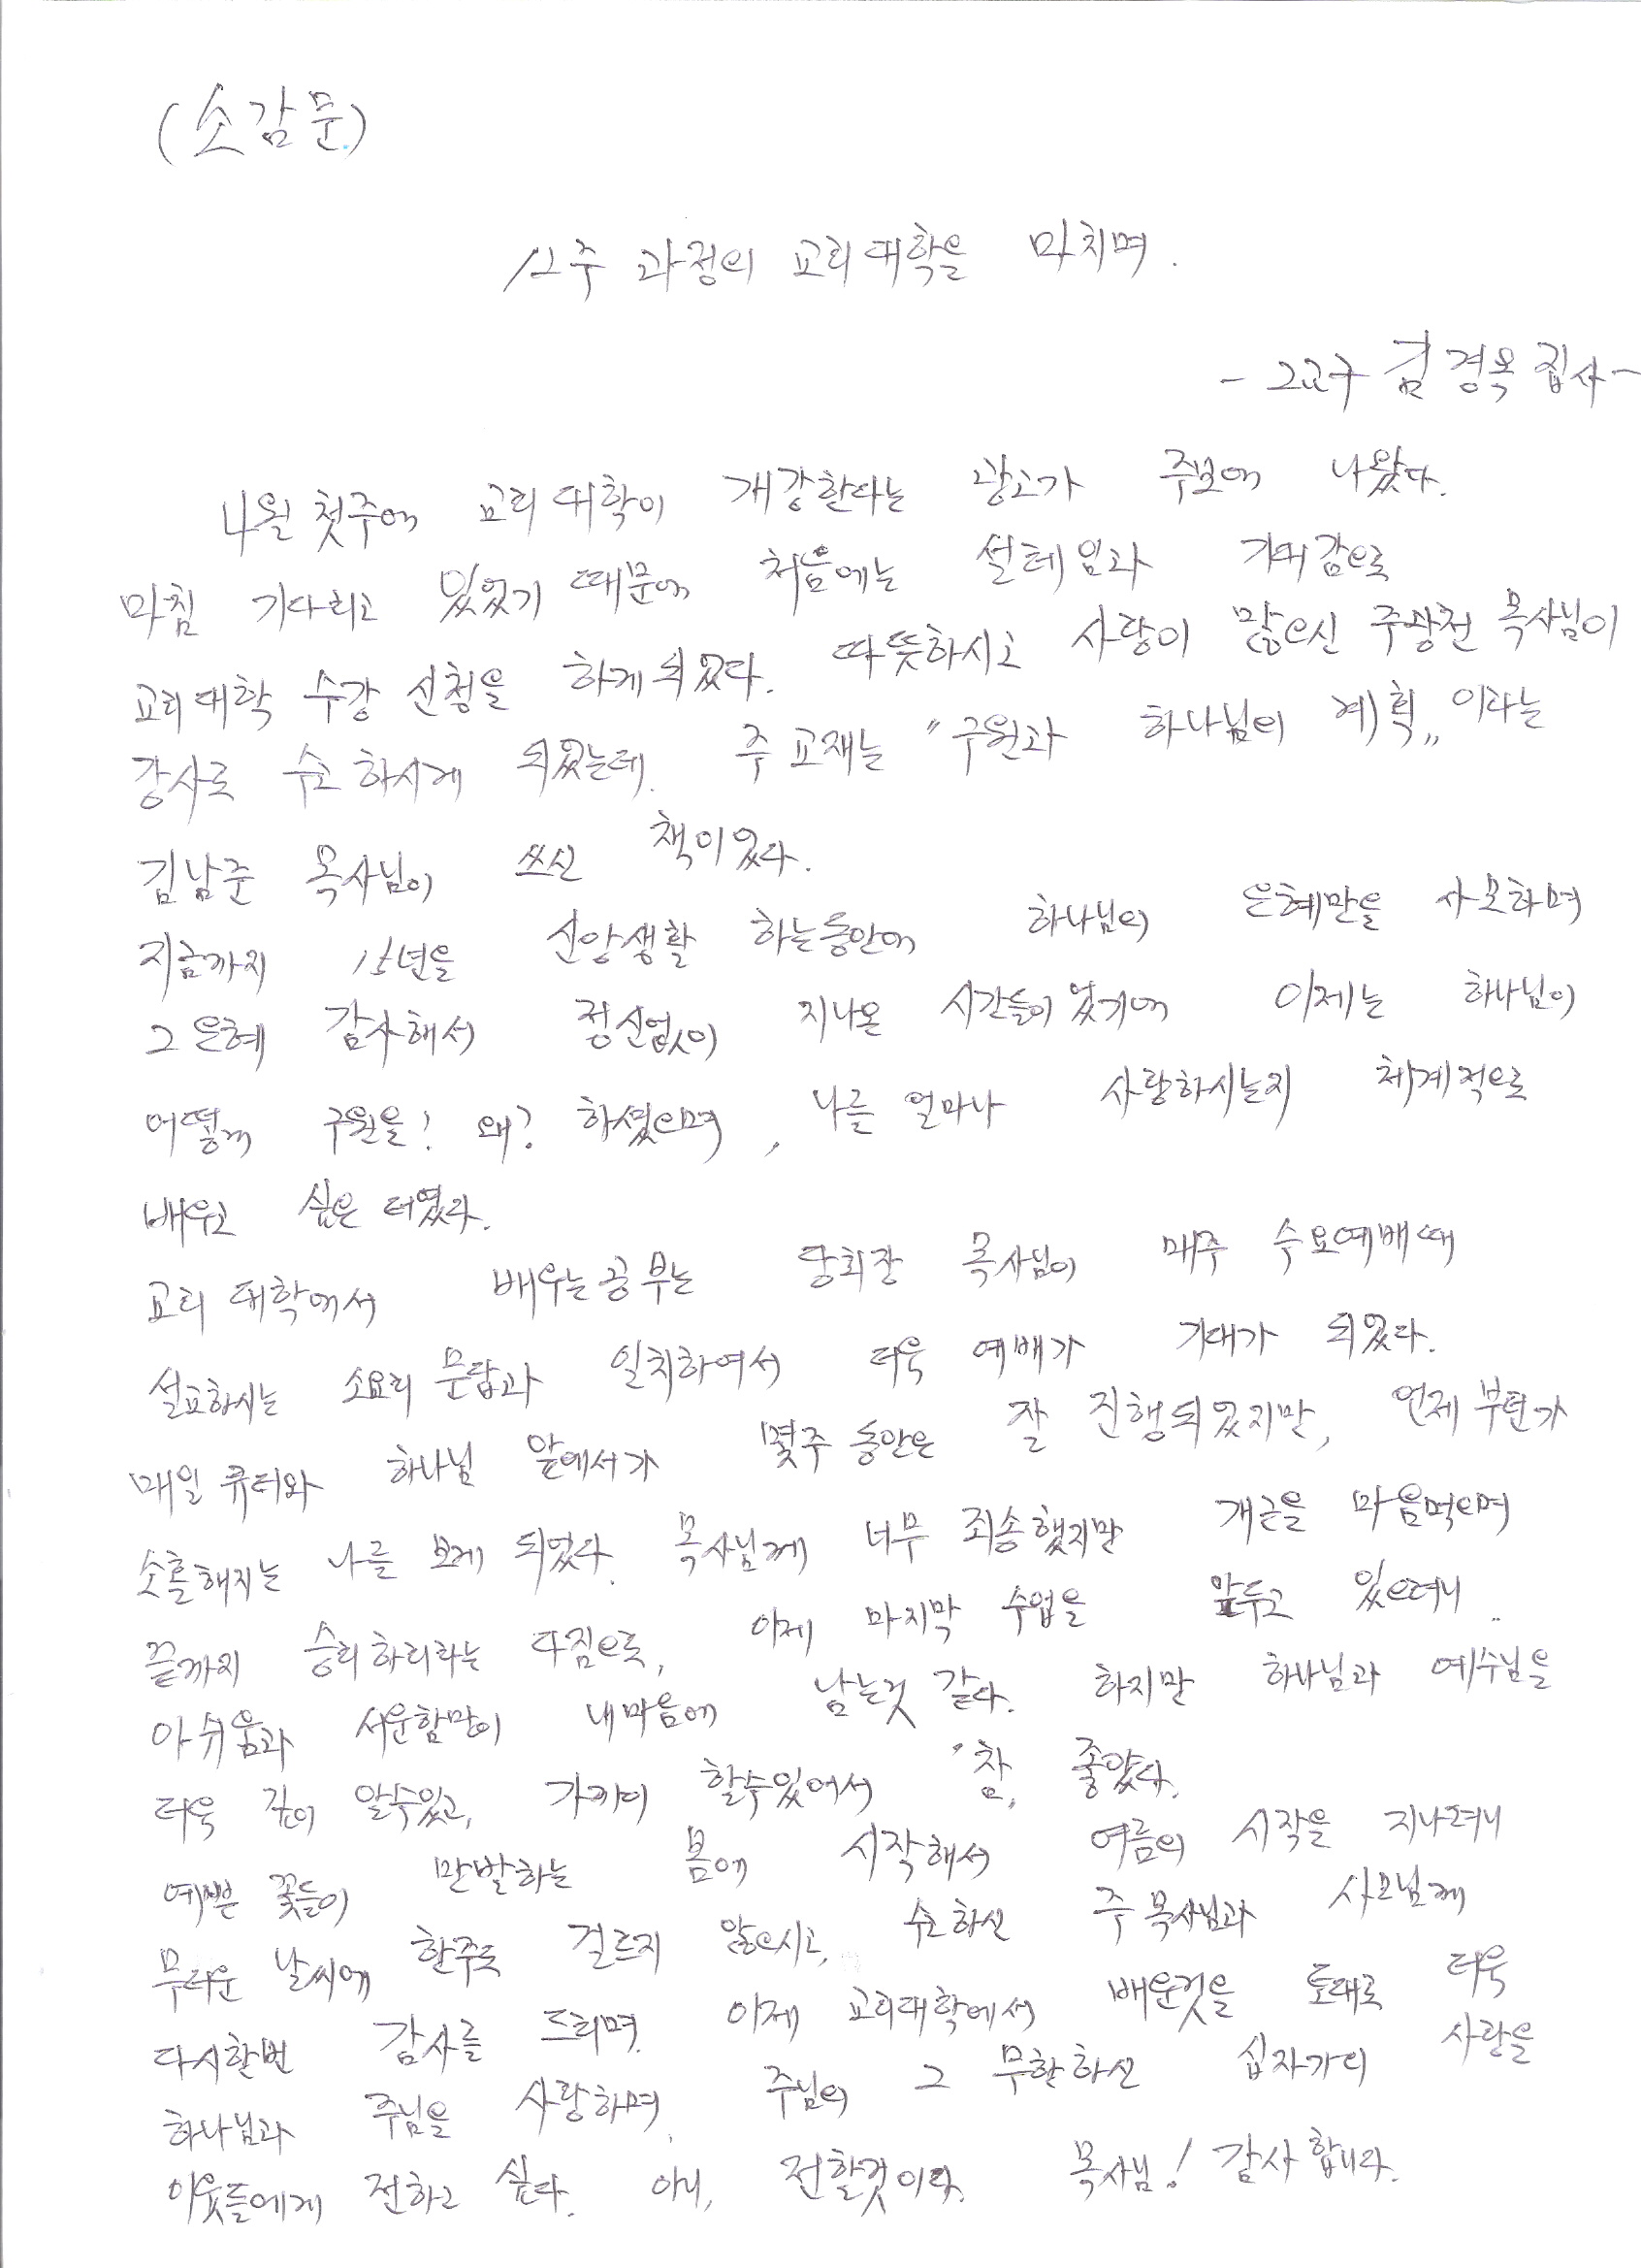 (소감문)
12주 과정의 교리대학을 마치며.
- 2교구 김경옥 집사 -
4월 첫주에 교리대학이 개강한다는 광고가 주보에 나왔다.
마침 기다리고 있었기 때문에 처음에는 설레임과 기대감으로
교리대학 수강 신청을 하게 되었다. 따뜻하시고 사랑이 많으신 주광전 목사님이
강사로 수고하시게 되었는데. 주 교재는 "구원과 하나님의 계획" 이라는
김남준 목사님이 쓰신 책이었다.
지금까지 15년을 신앙생활 하는동안에 하나님의 은혜만을 사모하며
그 은혜 감사해서 정신없이 지나온 시간들이었기에 이제는 하나님이
어떻게 구원을! 왜? 하셨으며, 나를 얼마나 사랑하시는지 체계적으로
배우고 싶은 터였다.
교리대학에서 배우는공부는 당회장 목사님이 매주 수요예배때
설교하시는 소요리 문답과 일치하여서 더욱 예배가 기대가 되었다.
매일 큐티와 하나님 앞에서가 몇주 동안은 잘 진행되었지만, 언제 부턴가
소홀해지는 나를 보게 되었다. 목사님께 너무 죄송했지만 개근을 마음먹으며
끝까지 승리하리라는 다짐으로, 이제 마지막 수업을 앞두고 있으려니.
아쉬움과 서운함만이 내마음에 남는것 같다. 하지만 하나님과 예수님을
더욱 깊이 알수있고, 가까이 할수있어서 "참, 좋았다.
예쁜 꽃들이 만발하는 봄에 시작해서 여름의 시작을 지나려니
무더운 날씨에 한주도 걸르지 않으시고, 수고하신 주 목사님과 사모님께
다시한번 감사를 드리며. 이제 교리대학에서 배운것을 토대로 더욱
하나님과 주님을 사랑하며, 주님의 그 무한하신 십자가의 사랑을
이웃들에게 전하고 싶다. 아니, 전할것이다. 목사님! 감사합니다.